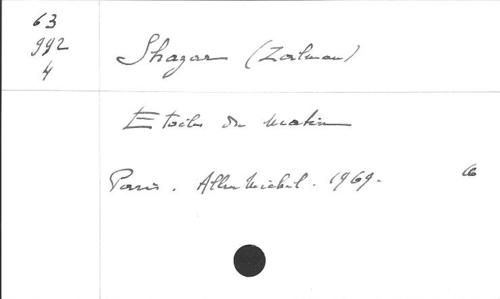 63
992
4
Shazar (Zalman)
Etoiles du matin
Paris. Albin Michel. 1969.